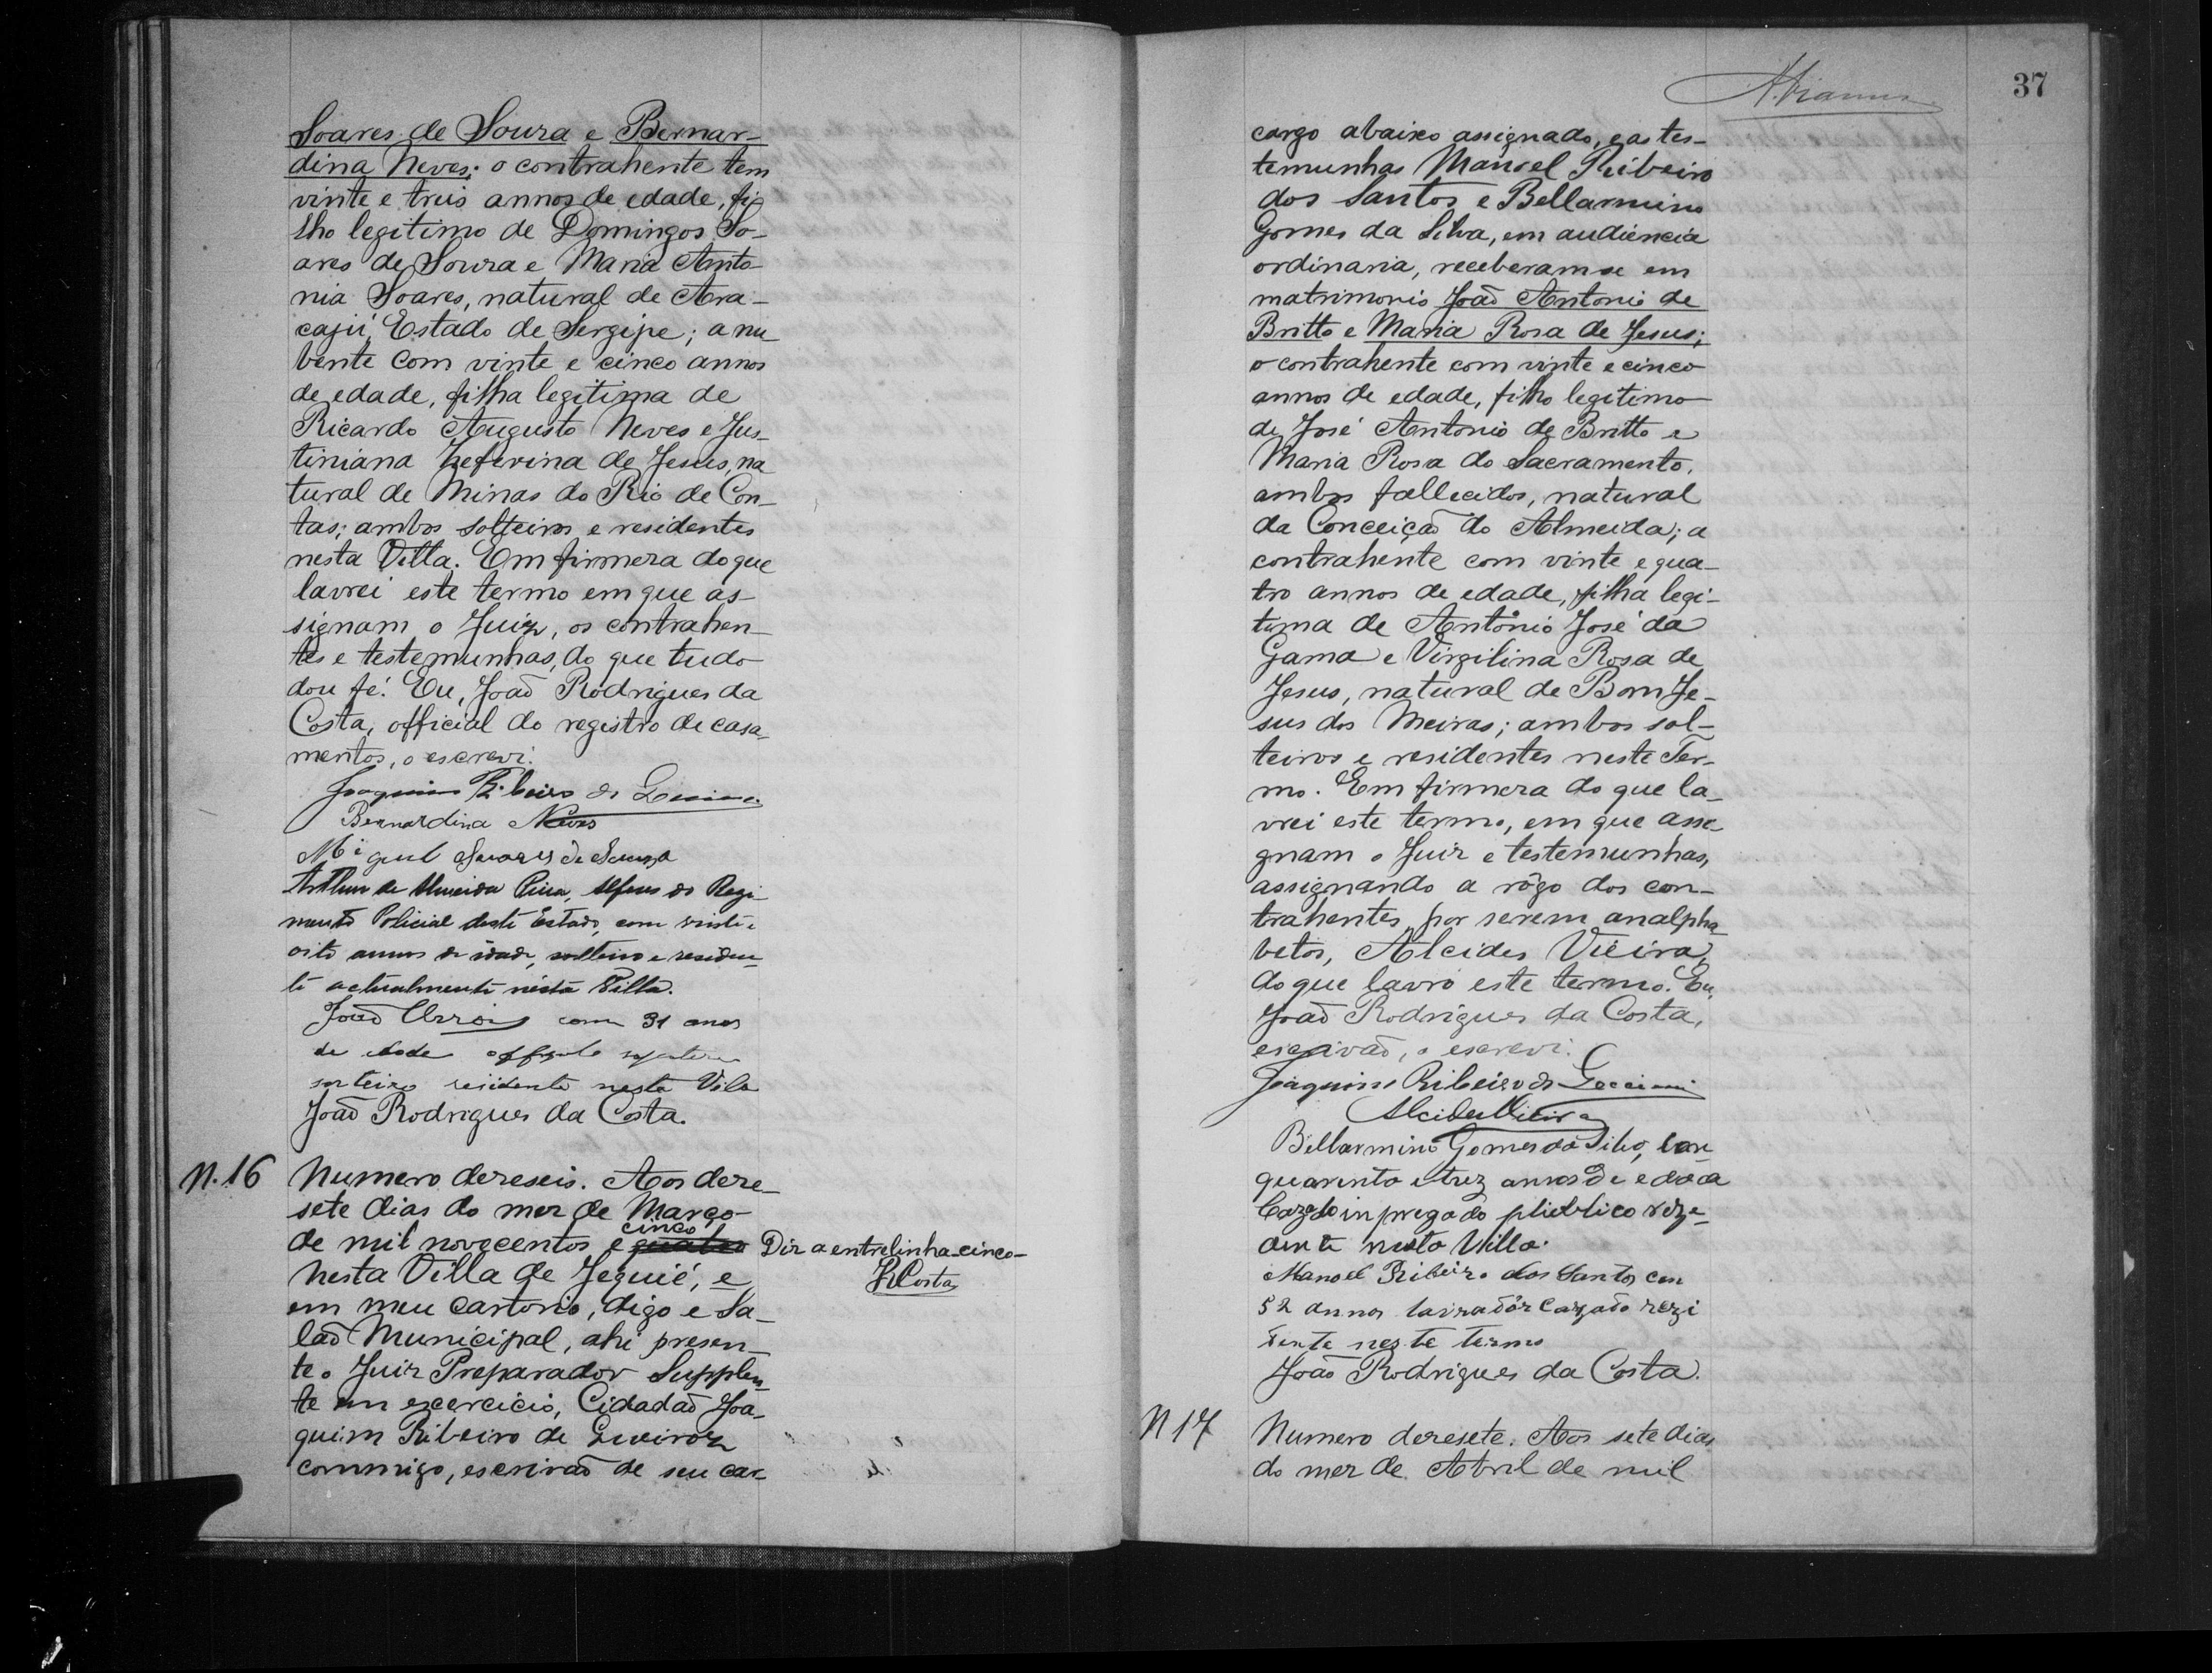 Soares de Souza e Bernar-
dina Neves; o contrahente tem
vinte e treis annos de edade, fi-
lho legitimo de Domingos So-
ares de Souza e Maria Anto-
nia Soares, natural de Ara-
cajú, Estado de Sergipe; a nu
bente com vinte e cinco annos
de edade, filha legitima de
Ricardo Augusto Neves e Jus-
tiniana Zeferina de Jesus, na
tural de Minas do Rio de Con-
tas; ambos solteiros e residentes
nesta Villa. Em firmeza do que
lavrei este termo em que as-
signam o Juiz, os contrahen-
tes e testemunhas, do que tudo
dou fé. Eu, João Rodrigues da
Costa, official do registro de casa-
mentos, o escrevi.
Joaquim Ribeiro de
Bernardina Neves
Miguel Soares de Souza
Arthur de Almeida Alferes do Regi-
mento Policial deste Estado, com vinte e
oito annos de idade, solteiro e residen-
te actualmente nésta Villa.
João com 31 anos
de edade
sorteiro residente nesta Vila
João Rodrigues da Costa.
N. 16 Numero dezeseis. Aos deze-
sete dias do mez de Março
de mil novecentos e quatro cinco Diz a entrelinha-cinco-
nesta Villa de Jequié, e JRCosta
em meu cartorio, digo e Sa-
lão Municipal, ahi presen-
te o Juiz Preparador Supplen-
te em exercicio, Cidadão Joa-
quim Ribeiro de Queiroz
commigo, escrivão de seu car-
37
cargo abaixo assignado, e as tes-
temunhas Manoel Ribeiro
dos Santos e Bellarmino
Gomes da Silva, em audiencia
ordinaria, receberam se em
matrimonio João Antonio de
Britto e Maria Rosa de Jesus;
o contrahente com vinte e cinco
annos de edade, filho legitimo
de José Antonio de Britto e
Maria Rosa do Sacramento,
ambos fallecidos, natural
da Conceição do Almeida; a
contrahente com vinte e qua-
tro annos de edade, filha legi-
tima de Antonio José da
Gama e Virgilina Rosa de
Jesus, natural de Bom Je-
sus dos Meiras; ambos sol-
teiros e residentes neste Ter-
mo. Em firmeza do que la-
vrei este termo, em que assi-
gnam o Juiz e testemunhas,
assignando a rôgo dos con-
trahentes, por serem analpha
betos, Alcides Vieira,
do que lavro este termo. Eu,
João Rodrigues da Costa,
escrivão, o escrevi.
Joaquim Ribeiro de
Alcides Vieira
Bellarmino Gomes da Silva, com
quarenta e trez annos de edada
Cazado inpregado pubblico reze-
dente nesta Villa.
Manoel Ribeiro dos Santos con
52 annos lavradôr cazado rezi
dente neste termo
João Rodrigues da Costa.
N 17 Numero dezesete. Aos sete dias
do mez de Abril de mil